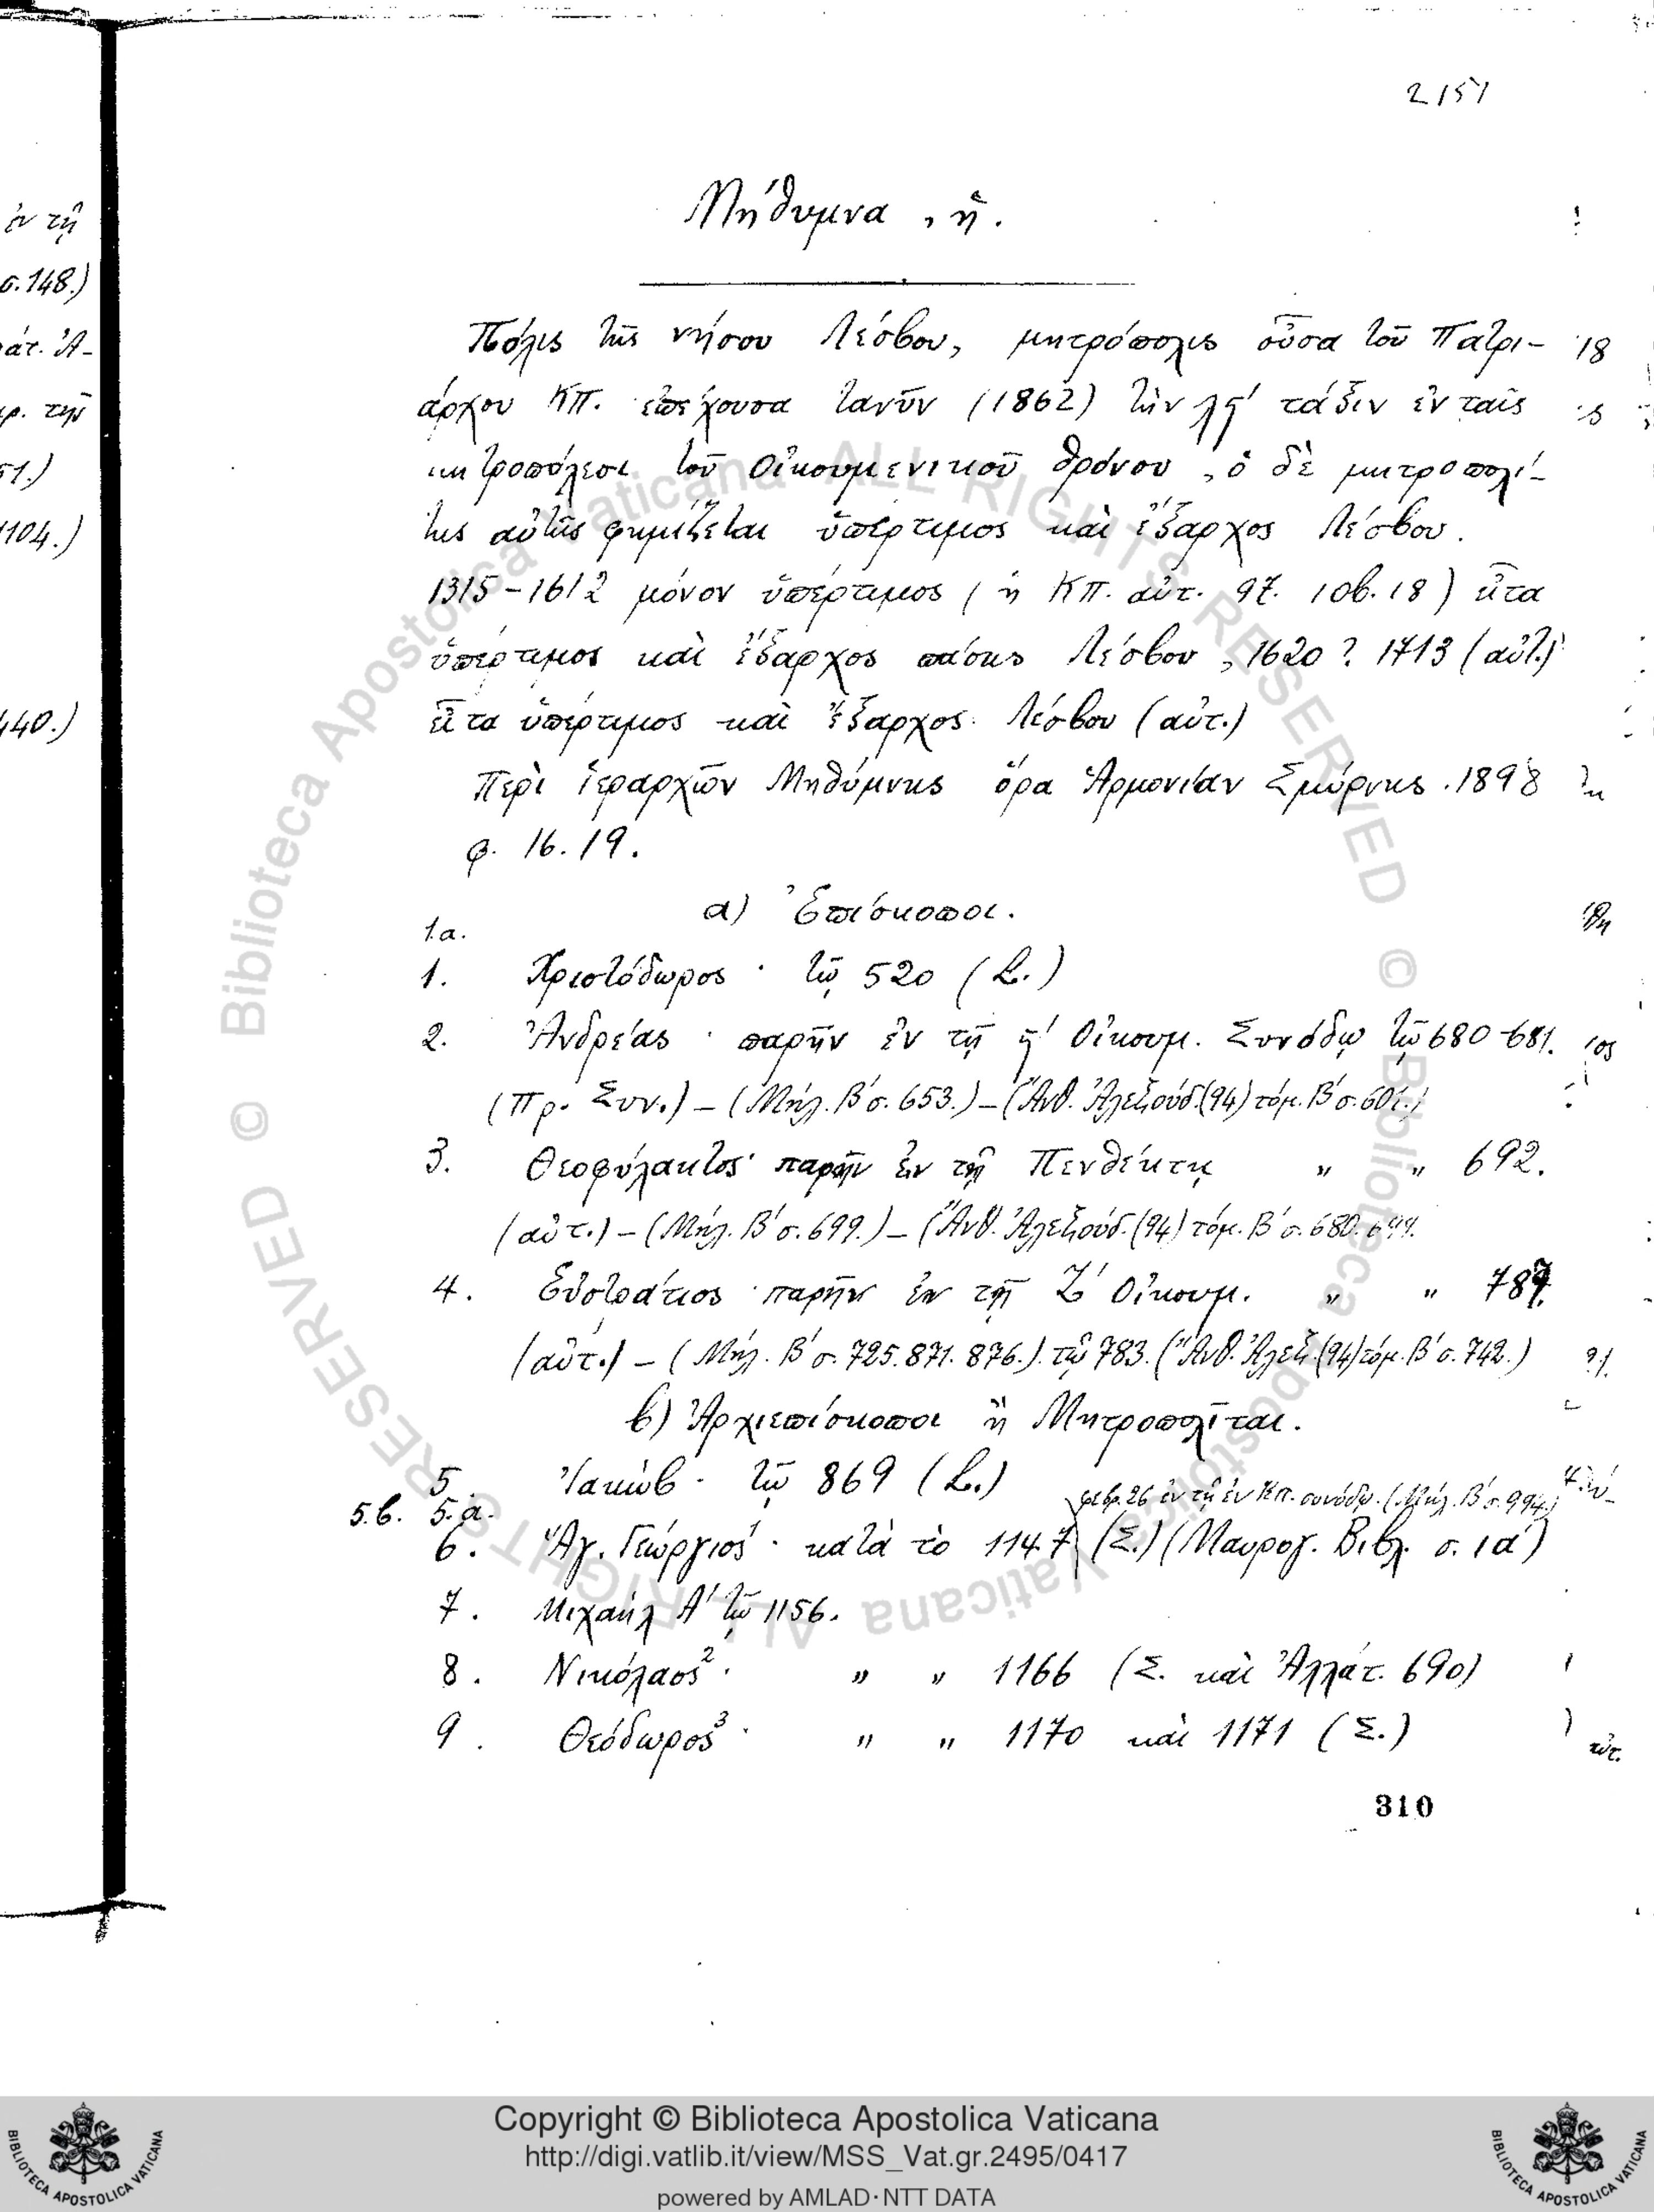 2151
Μήθυμνα, ἡ.
Πόλις τῆς νήσου Λέσβου, μητρόπολις οὖσα τοῦ Πατρι-
άρχου ΚΠ. ἐπέχουσα τανῦν (1862) τὴν λς΄ τάξιν ἐν ταῖς
μητροπόλεσι τοῦ Οἰκουμενικοῦ θρόνου, ὁ δὲ μητροπολί-
της αὐτῆς φημίζεται ὑπέρτιμος καὶ ἔξαρχος Λέσβου.
1315-1612 μόνον ὑπέρτιμος (ἡ ΚΠ. αὐτ. 97. 106. 18) εἶτα
ὑπέρτιμος καὶ ἔξαρχος πάσης Λέσβου, 1620? 1713 (αὐτ.)
εἶτα ὑπέρτιμος καὶ ἔξαρχος Λέσβου (αὐτ.)
Περὶ ἱεραρχῶν Μηθύμνης ὅρα Ἁρμονίαν Σμύρνης. 1898
φ. 16. 19.
α) Ἐπίσκοποι.
1.α.
1. Χριστόδωρος · τῷ 520 (L.)
2. Ἀνδρέας · παρῆν ἐν τῇ ς΄ Οἰκουμ. Συνόδῳ τῷ 680-681.
(Πρ. Συν.) - (Μήλ. Β΄ σ. 653.) - (Ἄνθ. Ἀλεξούδ. (94) τόμ. Β΄ σ. 601.)
3. Θεοφύλακτος · παρῆν ἐν τῇ Πενθέκτῃ " " 692.
(αὐτ.) - (Μήλ. Β΄ σ. 699.) - (Ἄνθ. Ἀλεξούδ. (94) τόμ. Β΄ σ. 680. 699.
4. Εὐστράτιος · παρῆν ἐν τῇ Ζ΄ Οἰκουμ. " " 787.
(αὐτ.) - (Μήλ. Β΄ σ. 725. 871. 876.). τῷ 783. (Ἄνθ. Ἀλεξ. (94) τόμ. Β΄ σ. 742.)
β) Ἀρχιεπίσκοποι ἢ Μητροπολῖται.
5. Ἰακώβ · τῷ 869 (L.)
φεβρ. 26 ἐν τῇ ἐν ΚΠ. συνόδῳ. (Μήλ. Β΄ σ. 994.)
5.β. 5.α.
6. Ἅγ. Γεώργιος · κατὰ τὸ 1147 (Σ.) (Μαυρογ. Βιβλ. σ. ια΄)
7. Μιχαήλ Α΄ τῷ 1156.
8. Νικόλαος² · " " 1166 (Σ. καὶ Ἀλλάτ. 690)
9. Θεόδωρος³ · " " 1170 καὶ 1171 (Σ.)
310
ἐν τῇ
σ. 148.)
άτ. Ἀ-
ρ. τῆς
51.)
1104.)
440.)
© Biblioteca Apostolica Vaticana ALL RIGHTS RESERVED
© Biblioteca Apostolica Vaticana ALL RIGHTS RESERVED
Copyright © Biblioteca Apostolica Vaticana
http://digi.vatlib.it/view/MSS_Vat.gr.2495/0417
powered by AMLAD · NTT DATA
BIBLIOTECA APOSTOLICA VATICANA
BIBLIOTECA APOSTOLICA VATICANA